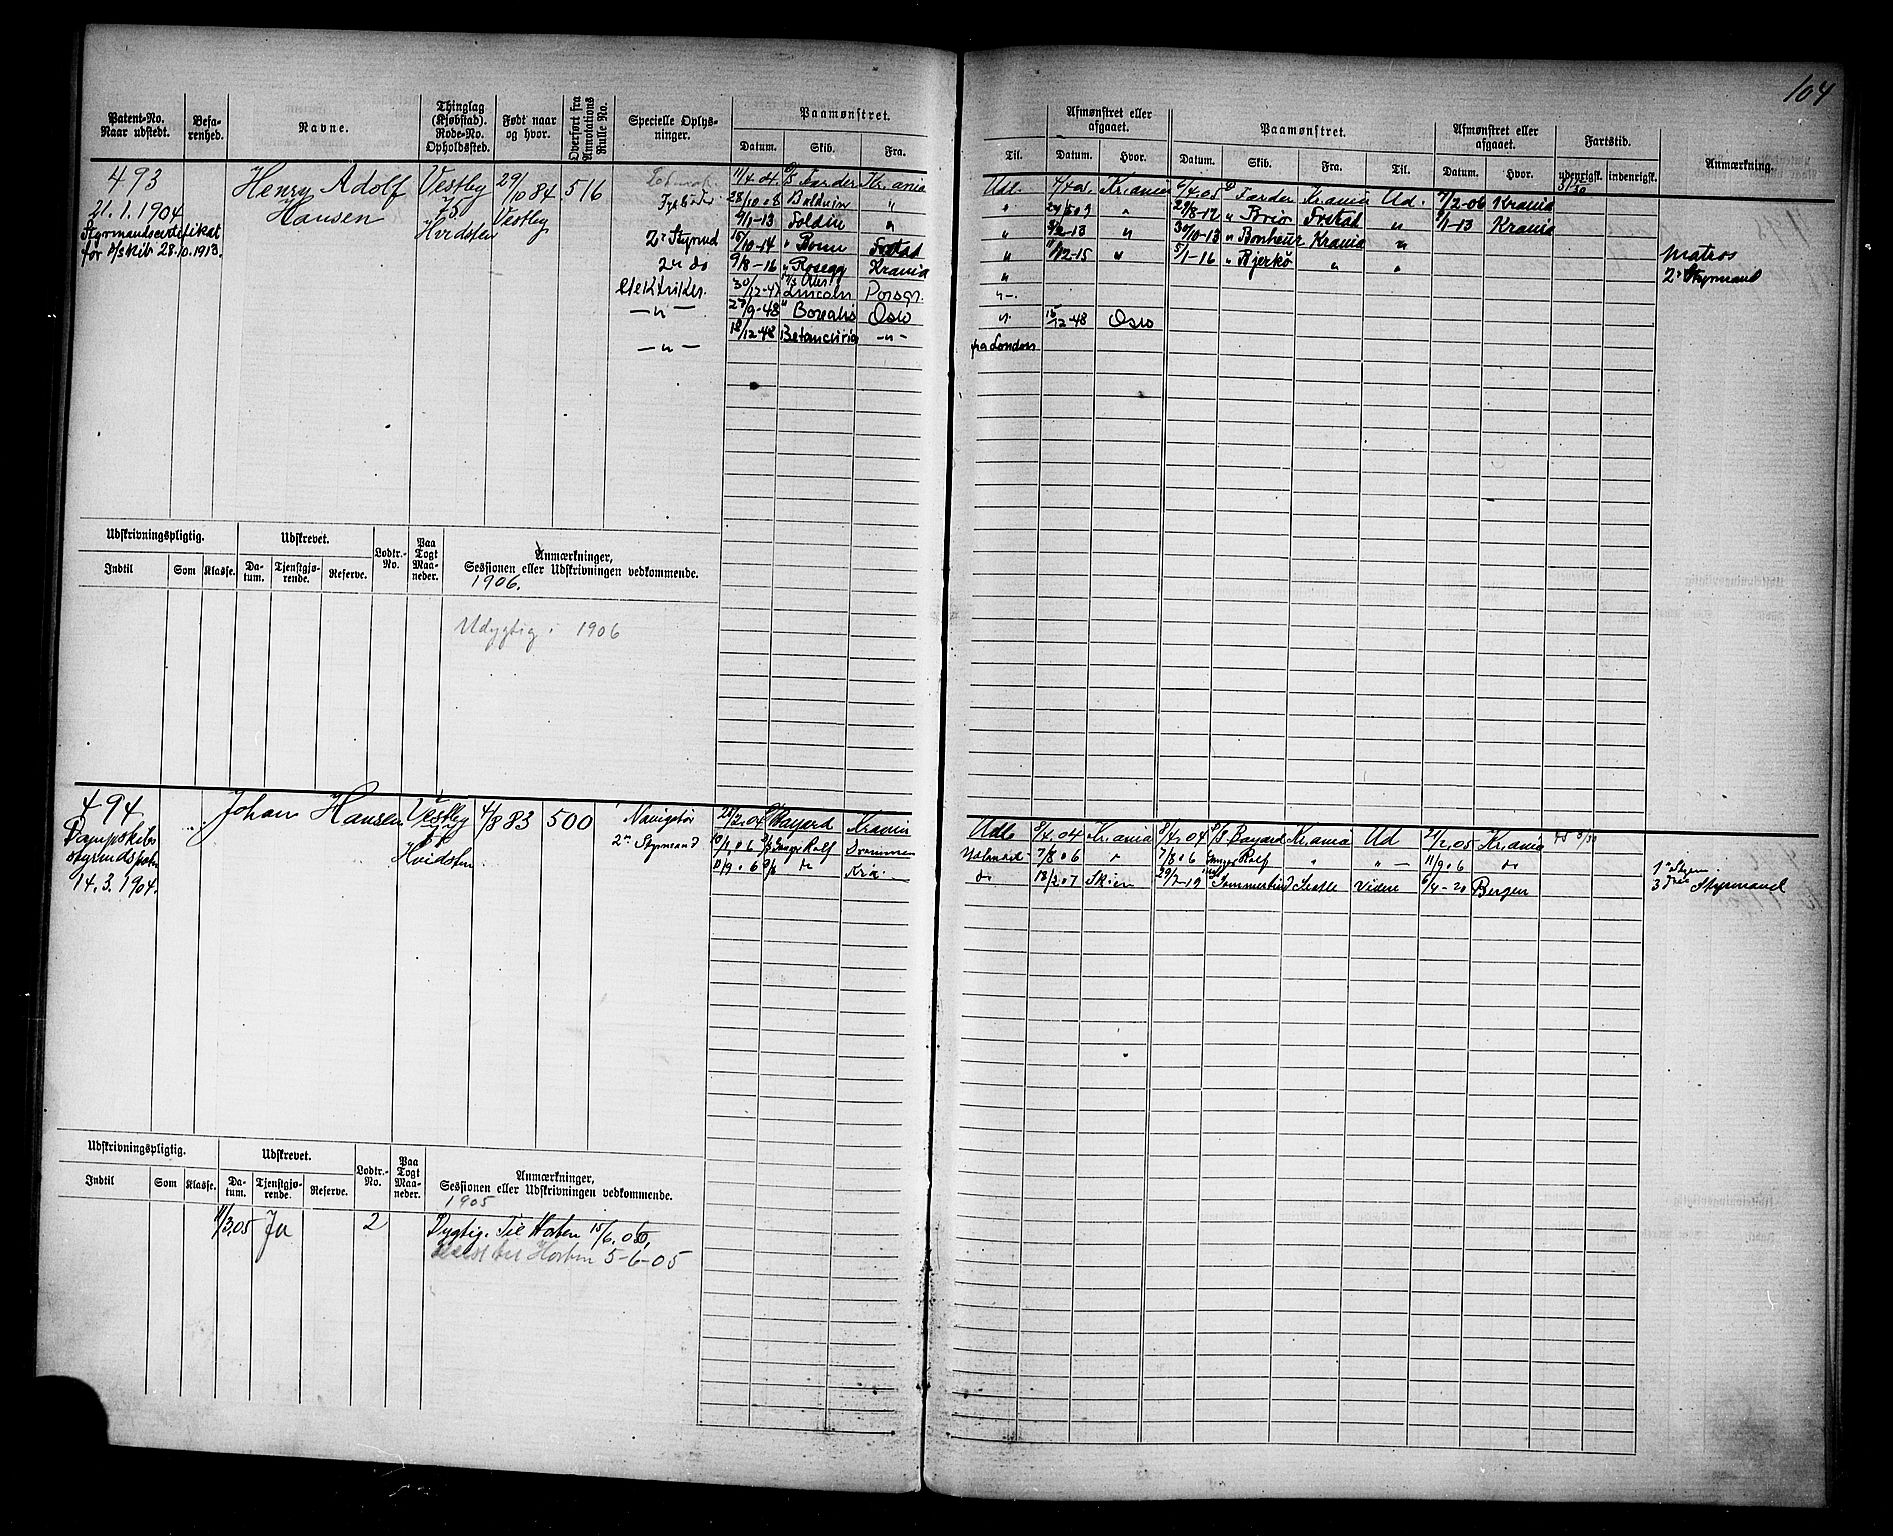 104
Patent-No. Naar udstedt.
Befarenhed.
Navne.
Thinglag (Kjøbstad). Rode-No. Opholdssted.
Født naar og hvor.
Overført fra Annotations Rulle No.
Specielle Oplysninger.
Paamønstret.
Datum. Skib. Fra.
Til.
Afmønstret eller afgaaet.
Datum. Hvor.
Paamønstret.
Datum. Skib. Fra. Til.
Afmønstret eller afgaaet.
Datum. Hvor.
Fartstid.
udenrigsk. indenrigsk.
Anmærkning.
493
21.1.1904
for d/skib 28.10.1913.
Henry Adolf
Hansen
Vestby
75
Hvidsten
29/10 84
Vestby
516
2n Styrmd
2n do
elektriker.
—"—
—"—
11/4 04 Færder Kr.ania
28/10 08 Baldwin "
4/1-13 Soldin "
15/10-14 " Bonn Frstad
9/8-16 " Rosegg Krania
30/12-47 M/S Abr. Lincoln Porsgr.
27/9-48 " Borealis Oslo
18/12-48 Betancuria —"—
Udl. Kr.ania
" 24/8 09 "
" 9/2-13 "
" 11/12-15 "
"
"-.
". 15/12-48 Oslo
fra London
6/4 05 Færder Krania Ud. 7/2-06 Krania
29/8-12 " Brio Frstad " 4/1-13 Krania
30/10-13 " Bonheur Krania "
5/1-16 " Bjerkø " "
Matros
2n Styrmand
Udskrivningspligtig.
Indtil Som Klasse.
Udskrevet.
Datum. Tjenstgjørende. Reserve.
Lodtr.-No.
Paa Togt Maaneder.
Anmærkninger,
Sessionen eller Udskrivningen vedkommende.
1906.
Udygtig i 1906
494
Dampskibs
14.3.1904.
Johan Hansen
Vestby
Hvidsten
4/8 83
500
Navigatør
2n Styrmand
Bayard Krania
10/1 06 Rolf Drammen
Udl. 8/4 04 Krania 8/4 04 Bayard Krania Ud 21/2 05 Krania
7/8 06 " 7/8 06 Rolf " "— 11/9 06 do
do 13/2 07 Skien 29/7-19 Sommerstad Seattle Videre 6/4-20 Bergen
3die Styrmand
Udskrivningspligtig.
Indtil Som Klasse.
Udskrevet.
Datum. Tjenstgjørende. Reserve.
Lodtr.-No.
Paa Togt Maaneder.
Anmærkninger,
Sessionen eller Udskrivningen vedkommende.
1905
11/3 05 Ja 2 Dygtig. Til Horten 15/6.05,
til Horten 5-6-05